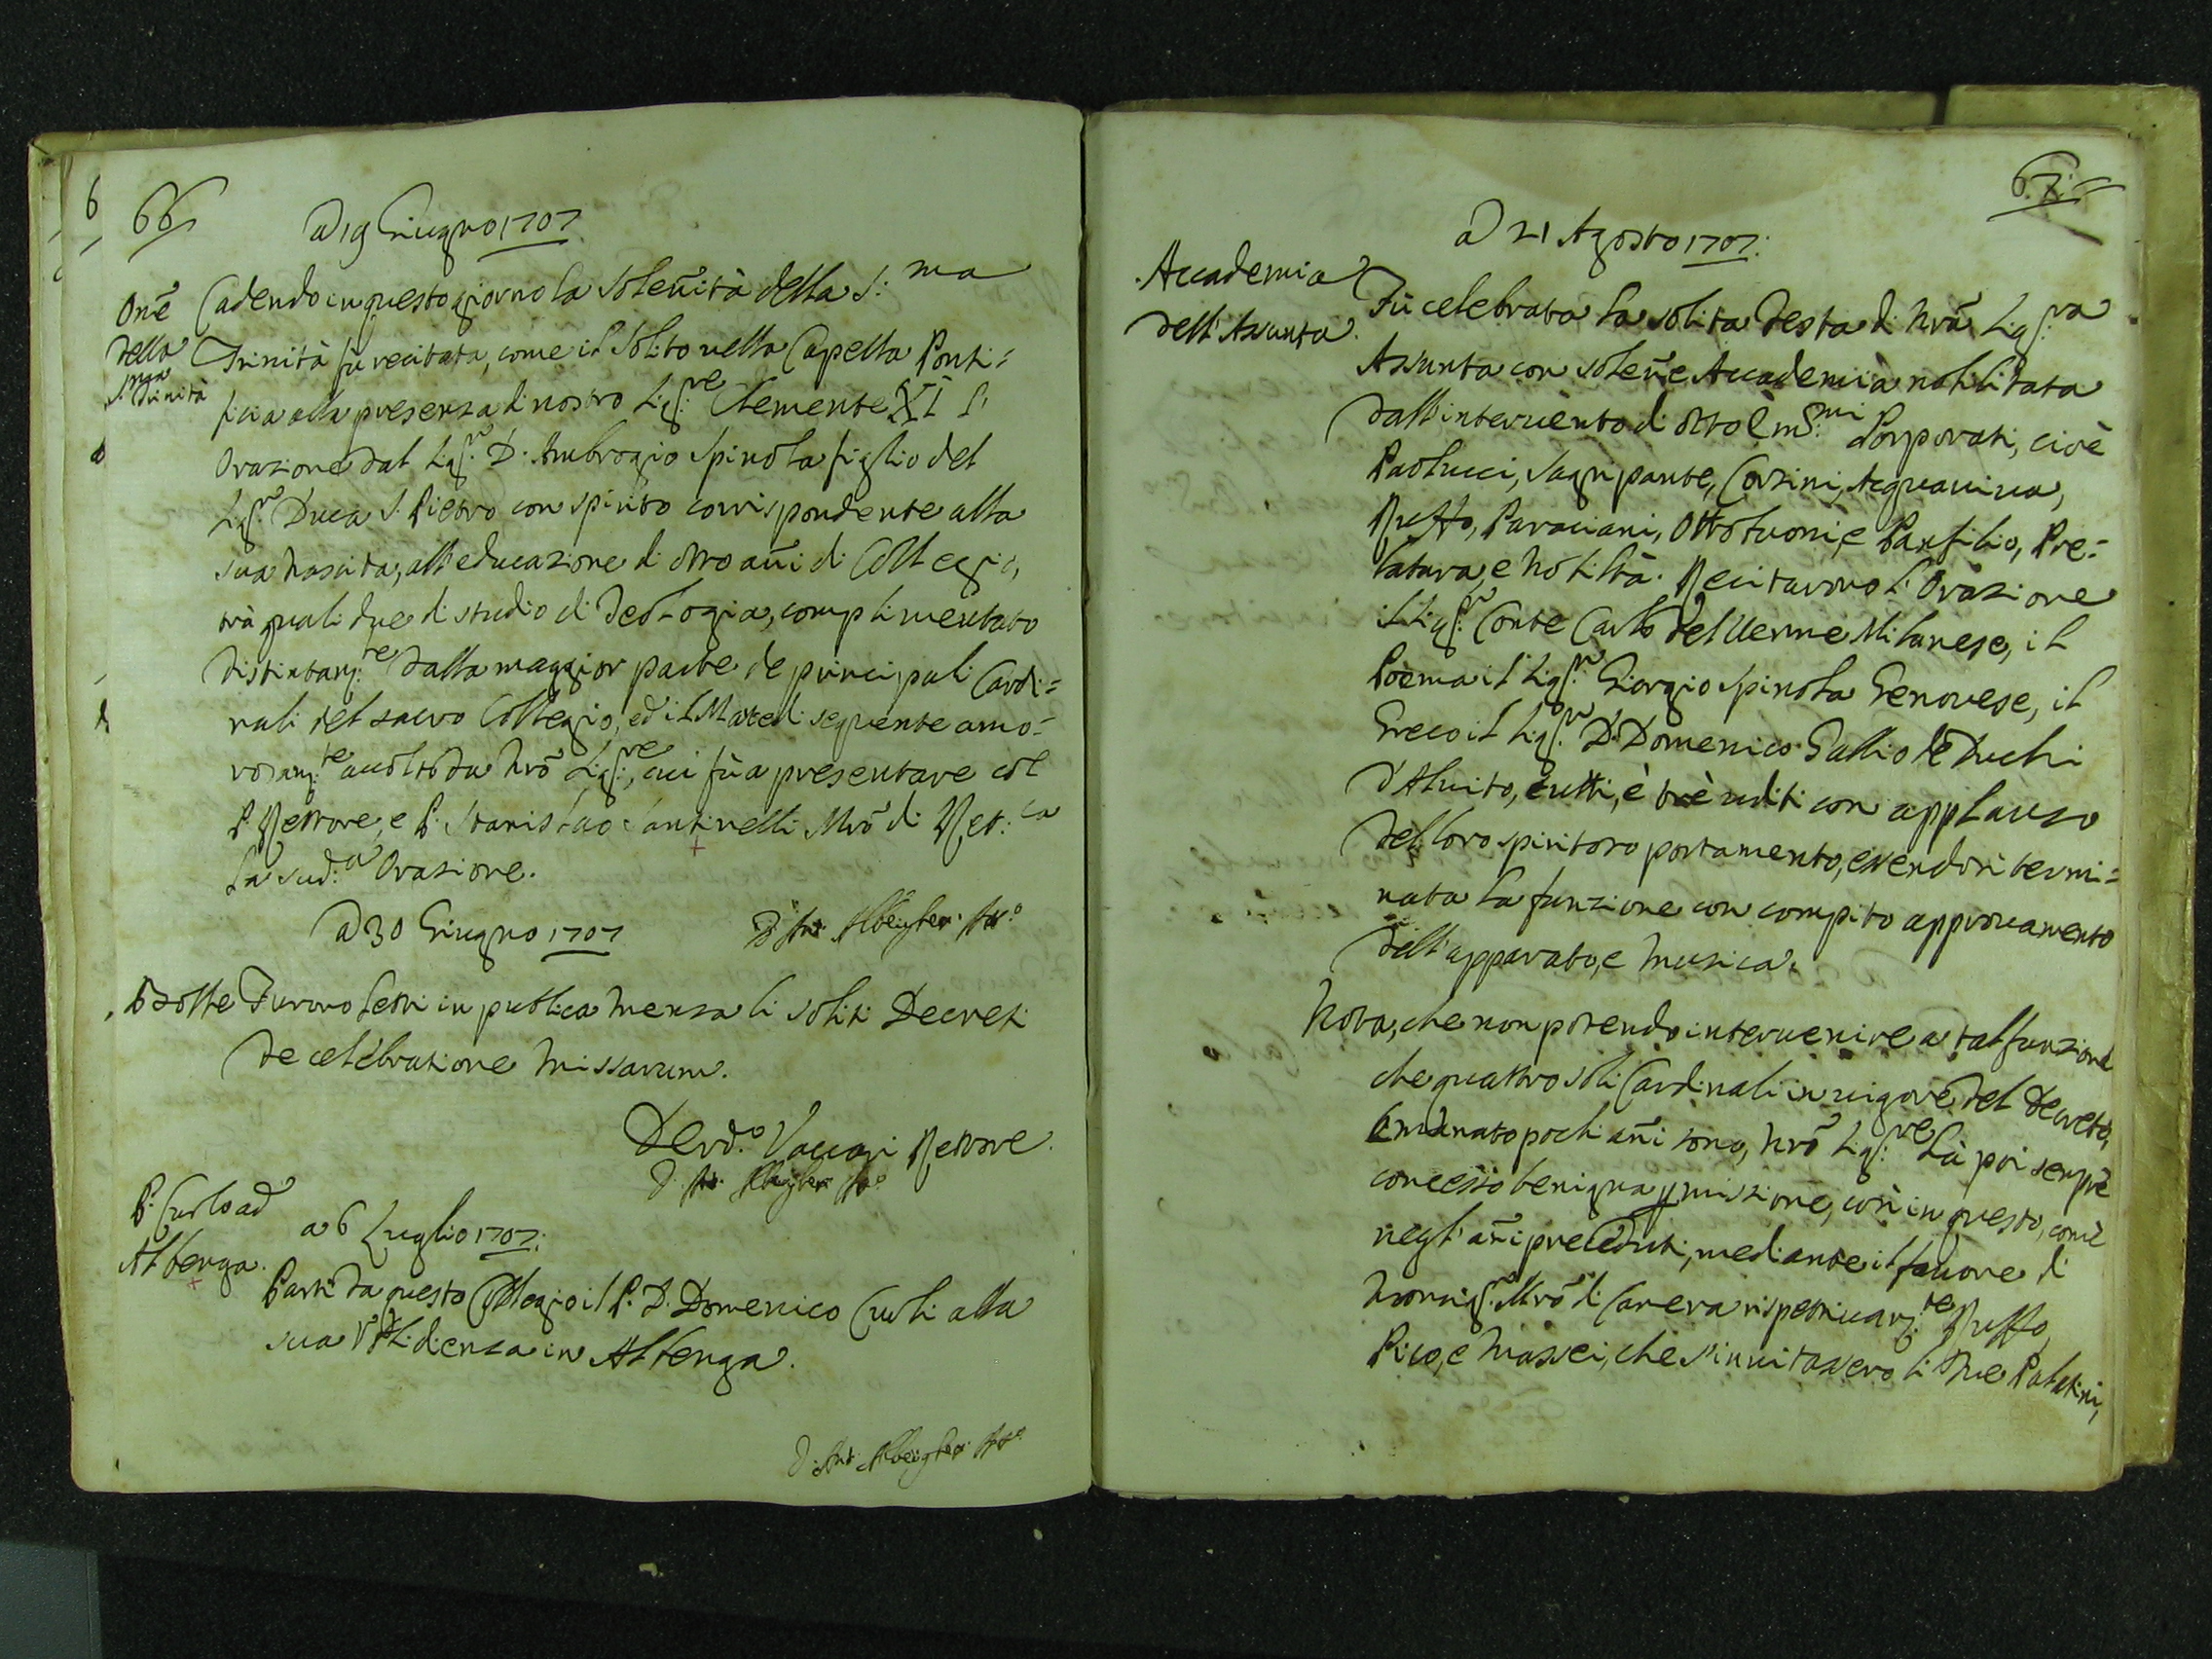 66
A 19 Giugno 1707
Onẽ
della
S.ma
Trinità
Cadendo in questo giorno la soleñità della S:ma
Trinità fù recitata, come il solito nella Capella Ponti=
ficia alla presenza di nostro Sig:re Clemente XI l'
Orazione dal Sig:r D. Ambrogio Spinola figlio del
Sig:r Duca S. Pietro con spirito corrispondente alla
sua nascita, all'educazione di otto añi di Collegio,
trà quali due di studio di Teologia, complimentato
distintam:te dalla maggior parte de principali Cardi=
nali del sacro Collegio, ed il Martedì seguente amo=
rosam:te accolto da Nrõ Sig:re, cui fù a presentare col
P. Rettore, e P. Stanislao Santinelli Mrõ di Ret:ca
la sud:a Orazione.
A 30 Giugno 1707
Furono letti in publica mensa li soliti Decreti
de celebratione Missarum.
Vaccari Rettore.
P. Curlo ad
Albenga.
a 6 Luglio 1707:
Partì da questo Collegio il P. D. Domenico Curli alla
sua residenza in Albenga.
67
A 21 Agosto 1707:
Accademia
dell'Assunta.
Fù celebrata la solita Festa di Nrã Sig:ra
Assunta con soleñe Accademia nobilitata
dall'intervento d'otto Em:mi Porporati, cioè
Paolucci, Sagripante, Corsini, Acquaviva,
Ruffo, Paraciani, Ottoboni, e Panfilio, Pre=
latura, e Nobiltà. Recitarono l'Orazione
il Sig:r Conte Carlo del Verme Milanese, il
Poema il Sig:r Giorgio Spinola Genovese, il
Greco il Sig:r D. Domenico Gallio de Duchi
d'Alvito, tutti, è trè uditi con applauso
del loro spiritoso portamento, essendosi termi=
nata la funzione con compito approvamento
dell'apparato, e Musica.
Nota, che non potendo intervenire a tal funzione
che quattro soli Cardinali in vigore del Decreto,
emanato pochi añi sono, Nrõ Sig:re hà poi sempre
concesso benigna pmissione, così in questo, come
negl'añi preceduti, mediante il favore di
Monsig:r Mrõ di Camera rispettivam:te Ruffo,
Pico, e Massei, che s'invitassero li due Palatini,